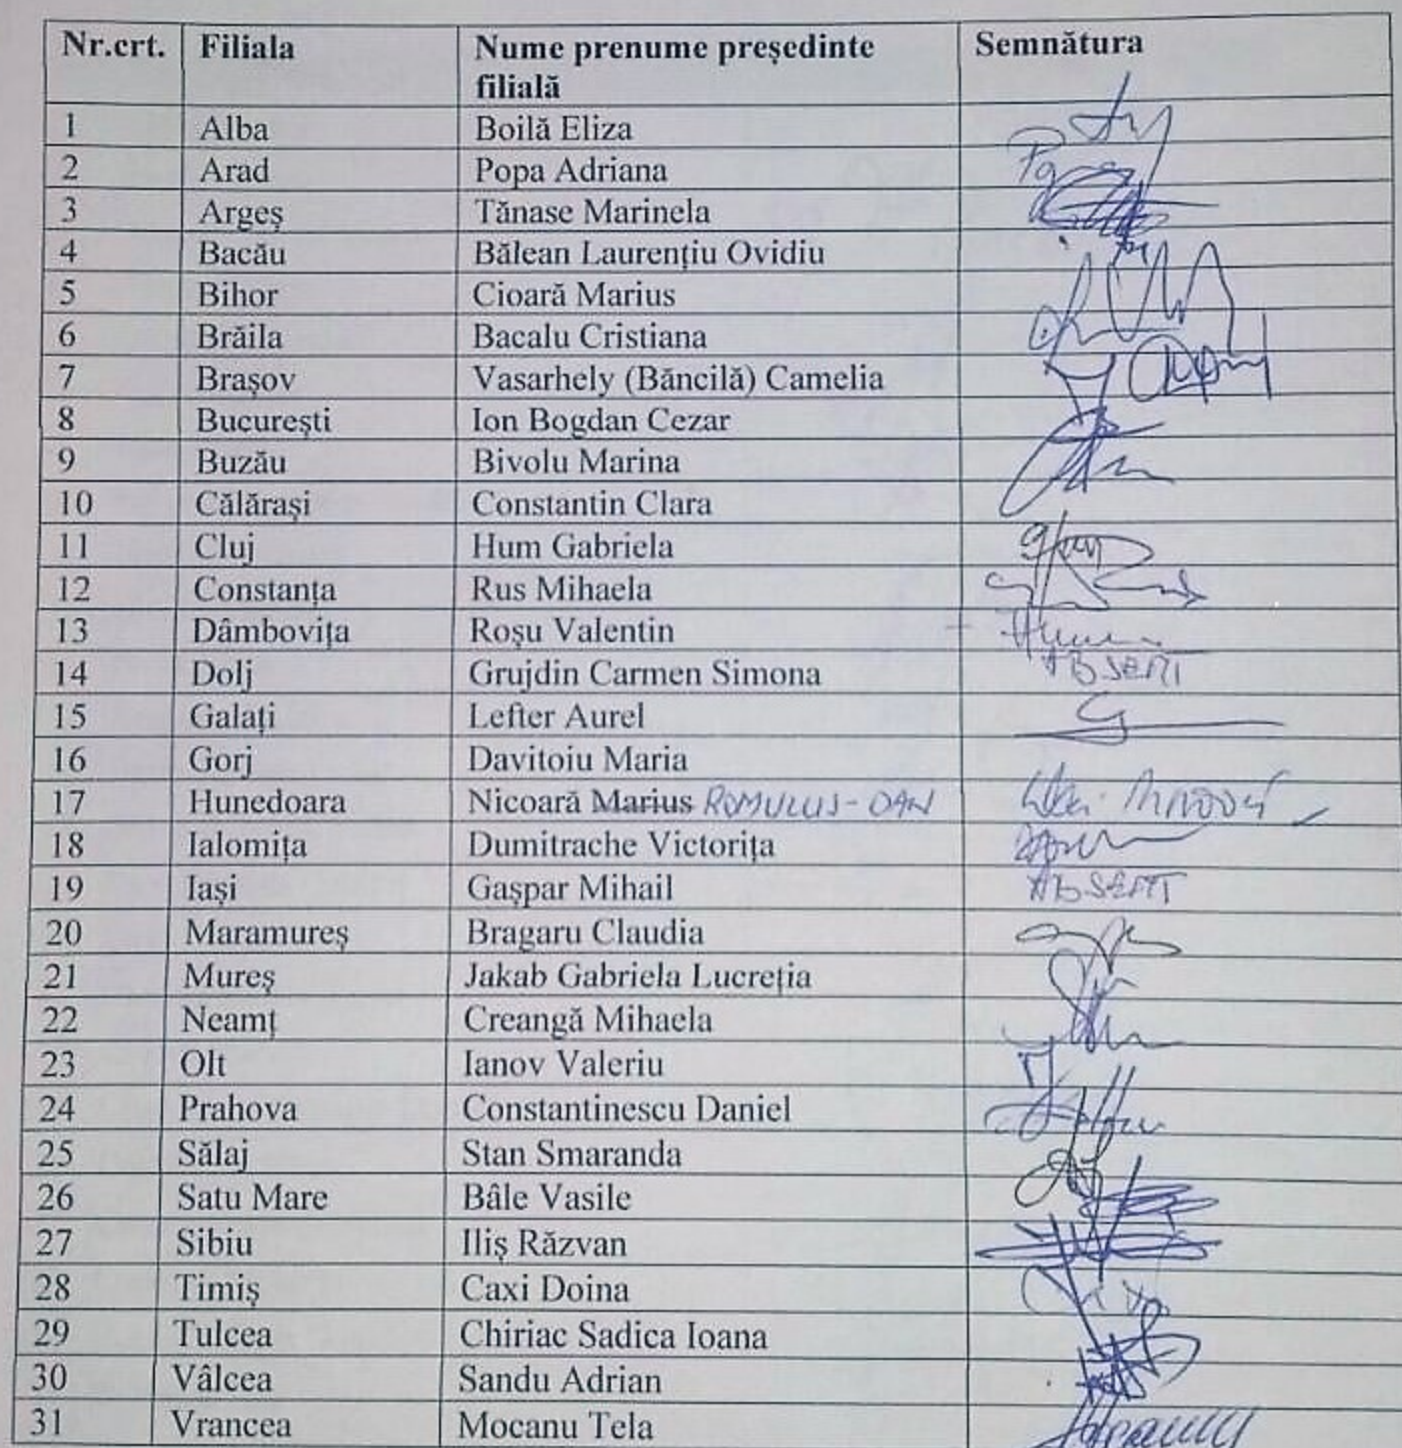 Nr.crt. Filiala Nume prenume președinte Semnătura
filială
1 Alba Boilă Eliza
2 Arad Popa Adriana
3 Argeș Tănase Marinela
4 Bacău Bălean Laurențiu Ovidiu
5 Bihor Cioară Marius
6 Brăila Bacalu Cristiana
7 Brașov Vasarhely (Băncilă) Camelia
8 București Ion Bogdan Cezar
9 Buzău Bivolu Marina
10 Călărași Constantin Clara
11 Cluj Hum Gabriela
12 Constanța Rus Mihaela
13 Dâmbovița Roșu Valentin
14 Dolj Grujdin Carmen Simona ABSENT
15 Galați Lefter Aurel
16 Gorj Davitoiu Maria
17 Hunedoara Nicoară Marius ROMULUS-DAN
18 Ialomița Dumitrache Victorița
19 Iași Gașpar Mihail ABSENT
20 Maramureș Bragaru Claudia
21 Mureș Jakab Gabriela Lucreția
22 Neamț Creangă Mihaela
23 Olt Ianov Valeriu
24 Prahova Constantinescu Daniel
25 Sălaj Stan Smaranda
26 Satu Mare Bâle Vasile
27 Sibiu Iliș Răzvan
28 Timiș Caxi Doina
29 Tulcea Chiriac Sadica Ioana
30 Vâlcea Sandu Adrian
31 Vrancea Mocanu Tela